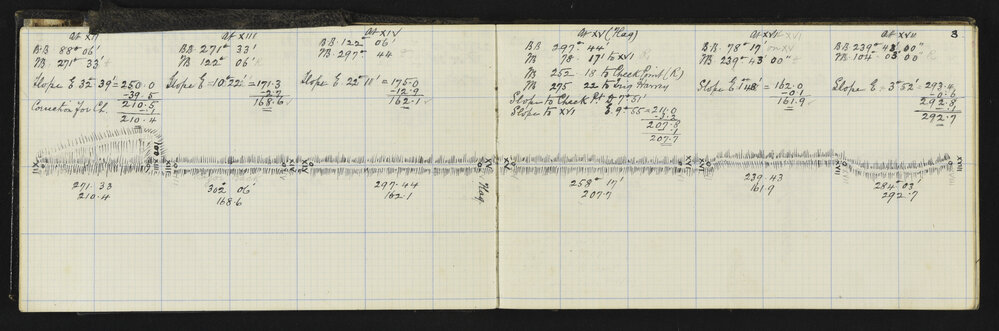 At XII
B.B. 88° 06'
M. 271° 33'
Slope E 32° 39' = 250.0
- 39.5
210.5
Correction for Ch. - .1
210.4
At XIII
B.B. 271° 33'
M 122° 06'
Slope E - 10° 22' = 171.3
- 2.7
168.6
At XIV
B.B. 122° 06'
M. 297° 44
Slope E. 22° 10' = 175.0
- 12.9
162.1
At XV (Flag)
B.B. 297° 44'
M 78° 17' to XVI R
M 252. 18 to Check Point (R)
M 275 22 to Trig Harry
Slope to Check Pt D 7° 51'
Slope to XVI E. 9° 55' = 211.0
- 3.2
207.8
- .1
207.7
At XVI
B.B. 78° 17'
M 239° 43' 00"
Slope E 1° 48' = 162.0
- 0.1
161.9
At XVII
B.B 239° 43' 00"
M. 104° 03' 00" R
Slope E - 3° 52' = 293.4
- 0.6
292.8
- .1
292.7
3
XII
XIII
XIII
XIV
XIV
XV
Flag
XV
XVI
XVI
XVII
XVII
271. 33
210.4
302° 06'
168.6
297.44
162.1
258° 17'
207.7
239.43
161.9
284° 03'
292.7